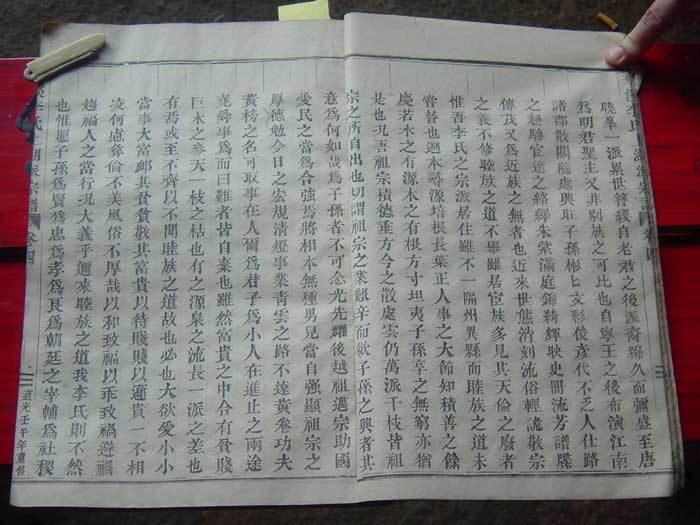 曉峯一派累世簪纓自老君之後派裔綿久而彌盛至唐
爲明君聖主又非別族之可比也自寧王之後布演江南
諸郡散閥隨處興旺子孫彬匕文彩俊彥代不乏人仕路
之趨驂宦途之絡繹朱紫滿庭錦綺輝映史冊流芳譜牒
傳茂又爲近族之無者也近來世態澆刻流俗輕訛敬宗
之義不修睦族之道不舉雖居宦族多見其天倫之廢者
惟吾李氏之宗派居住雖不一隔州異縣而睦族之道未
嘗替也廻本尋源培根長葉正人事之大節知積善之餘
慶若水之有源木之有根方寸坦夷子孫享之無窮亦猶
是也况吾祖宗積德垂方今之散處雲仍萬派千枝皆祖
宗之所自出也切謂祖宗之業艱辛而欲子孫之興者其
意爲何如哉爲子孫者不可念光先耀後越祖邁宗助國
愛民之當爲合強焉將相本無種男兒當自强顯祖宗之
厚德勉今日之宏規清燈事業青雲之路不達黃卷功夫
黃榜之名可取事在人爾爲君子爲小人在進止之兩途
堯舜事爲而曰難者皆自棄也雖然富貴之中合有貧賤
巨木之參天一枝之枯也有之源泉之流長一派之差也
有焉或至不齊以不聞睦族之道故也必也大欲愛小小
當事大富卹其貧貧敬其富貴以待賤賤以遜貴一不相
凌何慮彝倫不美風俗不厚哉以和致福以乖致禍避禍
趨福人之當行况大義乎邇來睦族之道我李氏則不然
也惟愿子孫爲賢爲忠爲孝爲良爲朝廷之宰輔爲社稷
道光壬午年重修